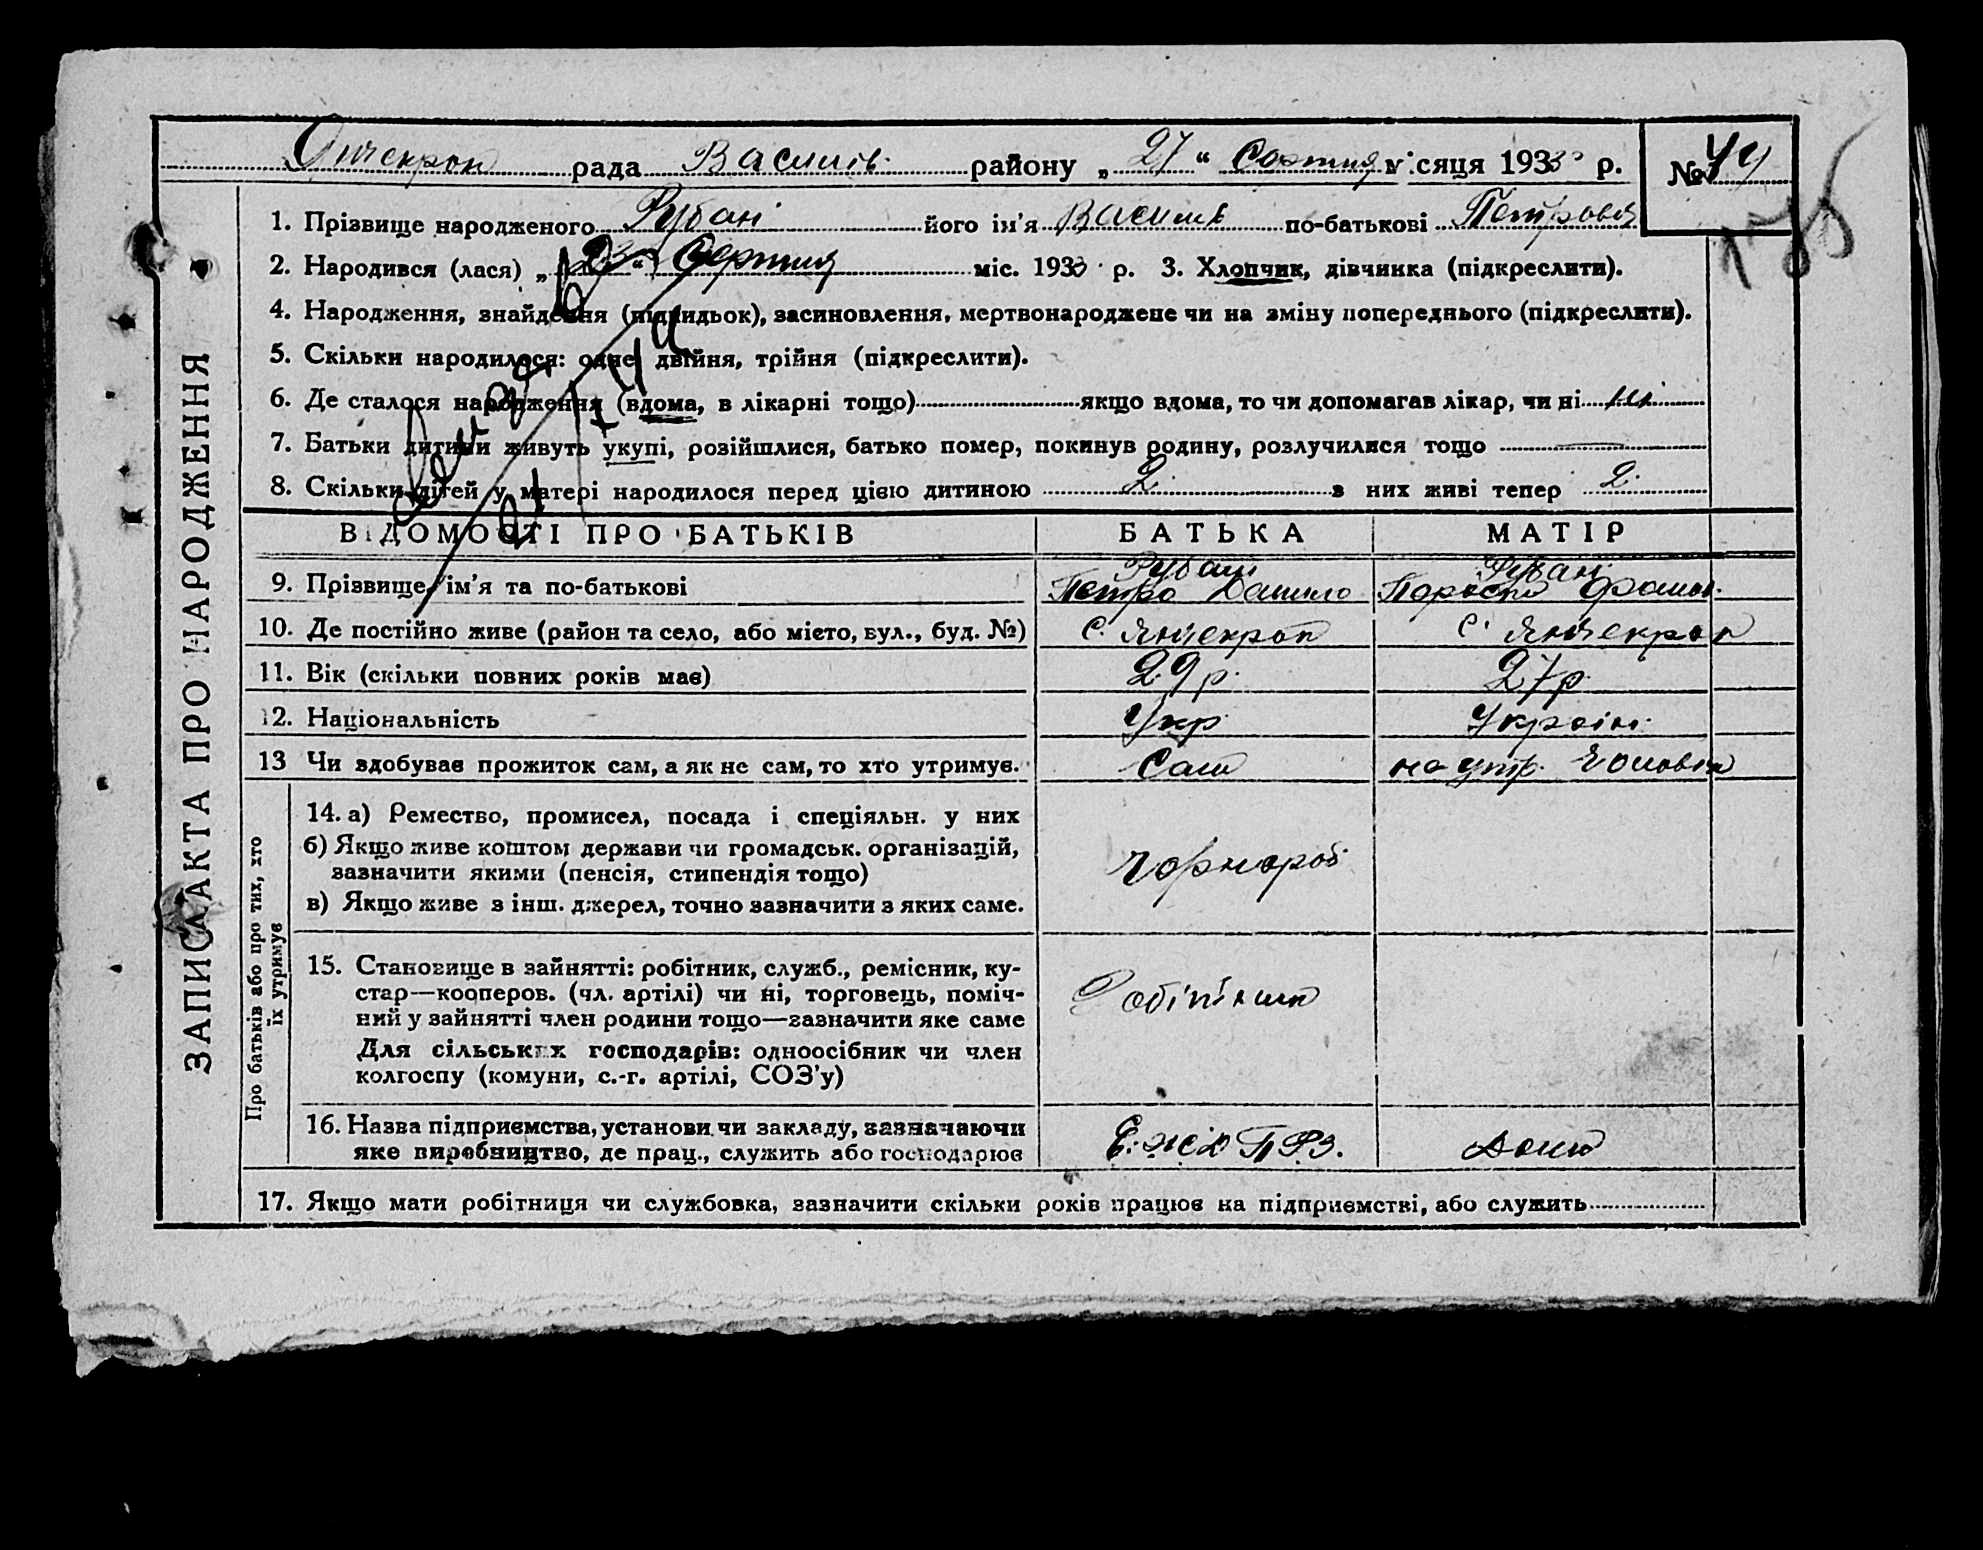 рада Василів. району „ 27 “ Серпня місяця 1933 р. № 44
1. Прізвище народженого Рубан його ім'я Василь по-батькові Петрович
2. Народився (лася) „ 23 “ Серпня міс. 1933 р. 3. Хлопчик, дівчинка (підкреслити).
4. Народження, знайдення (підкидьок), засиновлення, мертвонароджене чи на зміну попереднього (підкреслити).
5. Скільки народилося: одне, двійня, трійня (підкреслити).
6. Де сталося народження (вдома, в лікарні тощо) якщо вдома, то чи допомагав лікар, чи ні ні
7. Батьки дитини живуть укупі, розійшлися, батько помер, покинув родину, розлучилися тощо —
8. Скільки дітей у матері народилося перед цією дитиною 2 з них живі тепер 2.
ВІДОМОСТІ ПРО БАТЬКІВ БАТЬКА МАТІР
9. Прізвище, ім'я та по-батькові Рубан Петро Данило Рубан
10. Де постійно живе (район та село, або місто, вул., буд. №) с. Янчекрак с. Янчекрак
11. Вік (скільки повних років має) 29 р. 27 р.
12. Національність Укр Україн.
13 Чи здобував прожиток сам, а як не сам, то хто утримує. Сам на утр. Чоловіка
14. а) Ремество, промисел, посада і спеціяльн. у них
б) Якщо живе коштом держави чи громадськ. організацій,
зазначити якими (пенсія, стипендія тощо)
в) Якщо живе з інш. джерел, точно зазначити з яких саме.
Чорнороб
15. Становище в зайнятті: робітник, служб., ремісник, ку-
стар—кооперов. (чл. артілі) чи ні, торговець, поміч-
ний у зайнятті член родини тощо—зазначити яке саме
Для сільських господарів: одноосібник чи член
колгоспу (комуни, с.-г. артілі, СОЗ'у)
Робітник
16. Назва підприємства, установи чи закладу, зазначаючи
яке виробництво, де прац., служить або господарює
17. Якщо мати робітниця чи службовка, зазначити скільки років працює на підприємстві, або служить
ЗАПИС АКТА ПРО НАРОДЖЕННЯ
Про батьків або про тих, хто
їх утримує